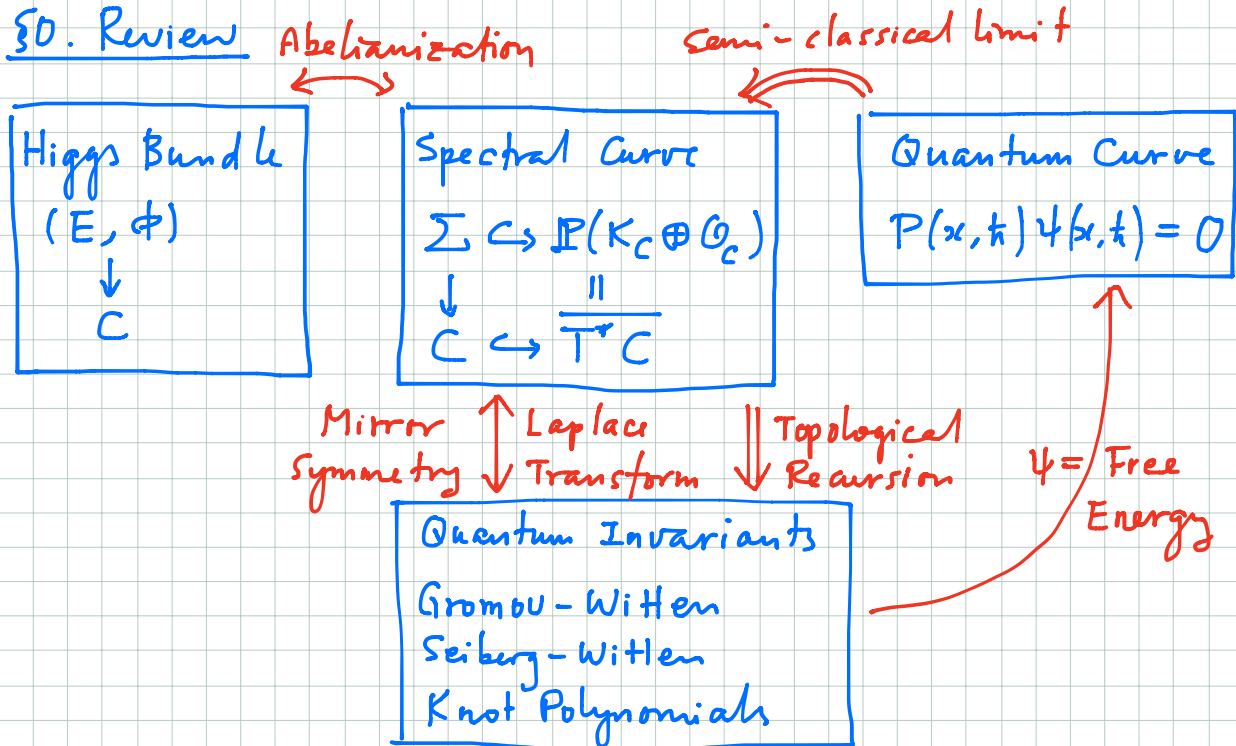 §0. Review
Abelianization
Semi-classical limit
Higgs Bundle
(E, ϕ)
↓
C
Spectral Curve
Σ ↪ ℙ(K_C ⊕ O_C)
↓ ||
C ↪ \overline{T^* C}
Quantum Curve
P(x, ħ) Ψ(x, ħ) = 0
Mirror
Symmetry
Laplace
Transform
Topological
Recursion
Ψ = Free
Energy
Quantum Invariants
Gromov-Witten
Seiberg-Witten
Knot Polynomials